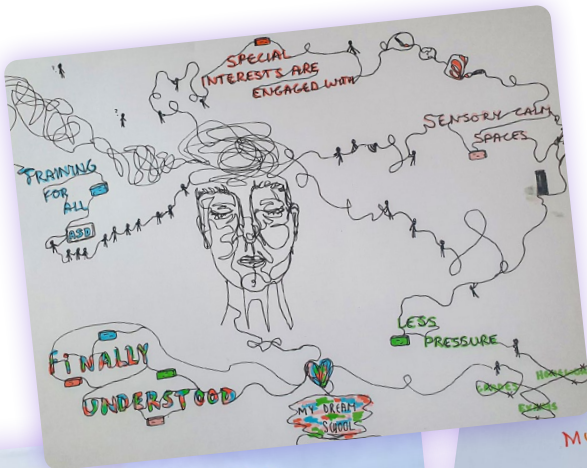 SPECIAL
INTERESTS ARE
ENGAGED WITH
SENSORY CALM
SPACES
TRAINING
FOR
ALL
ASD
LESS
PRESSURE
GRADES
EXAMS
FINALLY
UNDERSTOOD
MY DREAM
SCHOOL